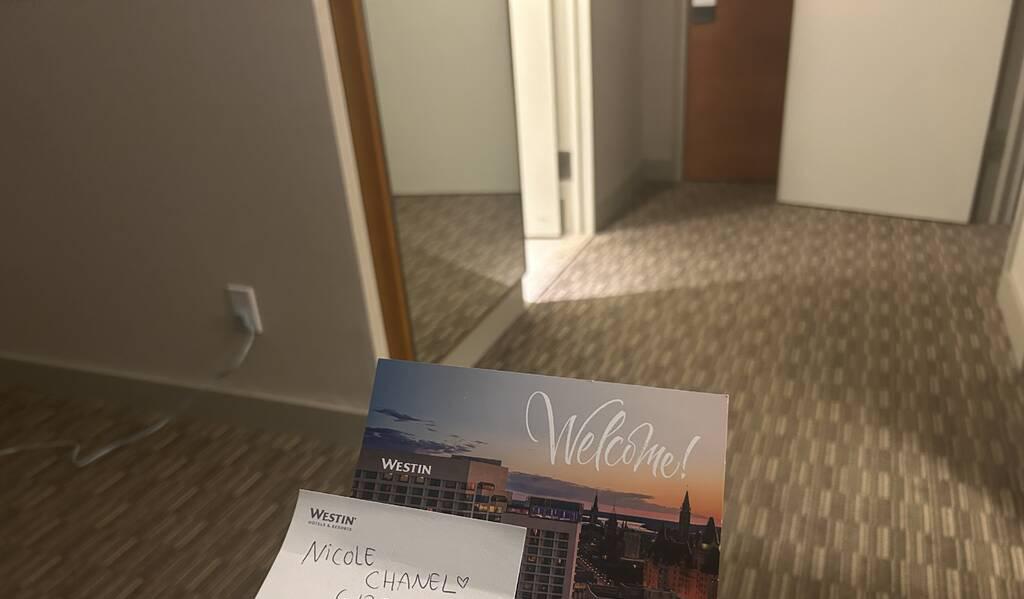 Welcome!
WESTIN
WESTIN
HOTELS & RESORTS
NICOLE
CHANEL♡